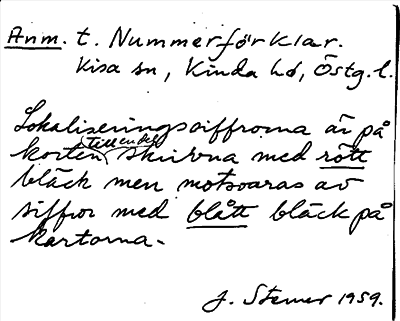 Anm. t. Nummerförklar.
Kisa sn, Kinda hd, Östg. l.
Lokaliseringssiffrorna är på
korten till en del skrivna med rött
bläck men motsvaras av
siffror med blått bläck på
kartorna.
J. Stemer 1959.